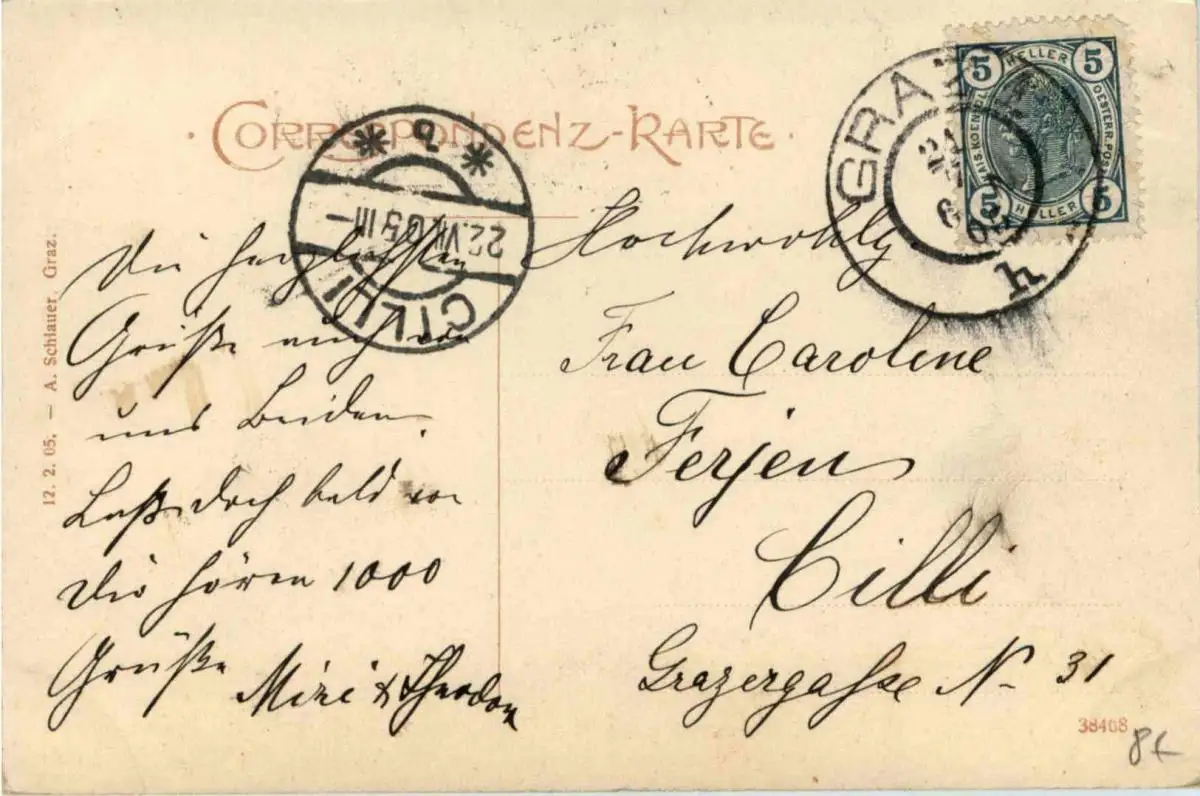 CORRESPONDENZ-KARTE
GRAZ
h
5 HELLER 5
5 HELLER 5
* a *
22.VII.05 III –
CILLI
Die herzlichsten
Grüße auch von
uns Beiden.
Laß doch bald von
Dir hören 1000
Grüße
Mizi & Theodor
Hochwohlg
Frau Caroline
Ferjen
Cilli
Grazergasse N– 31
12. 2. 05. — A. Schlauer, Graz.
38408
8€